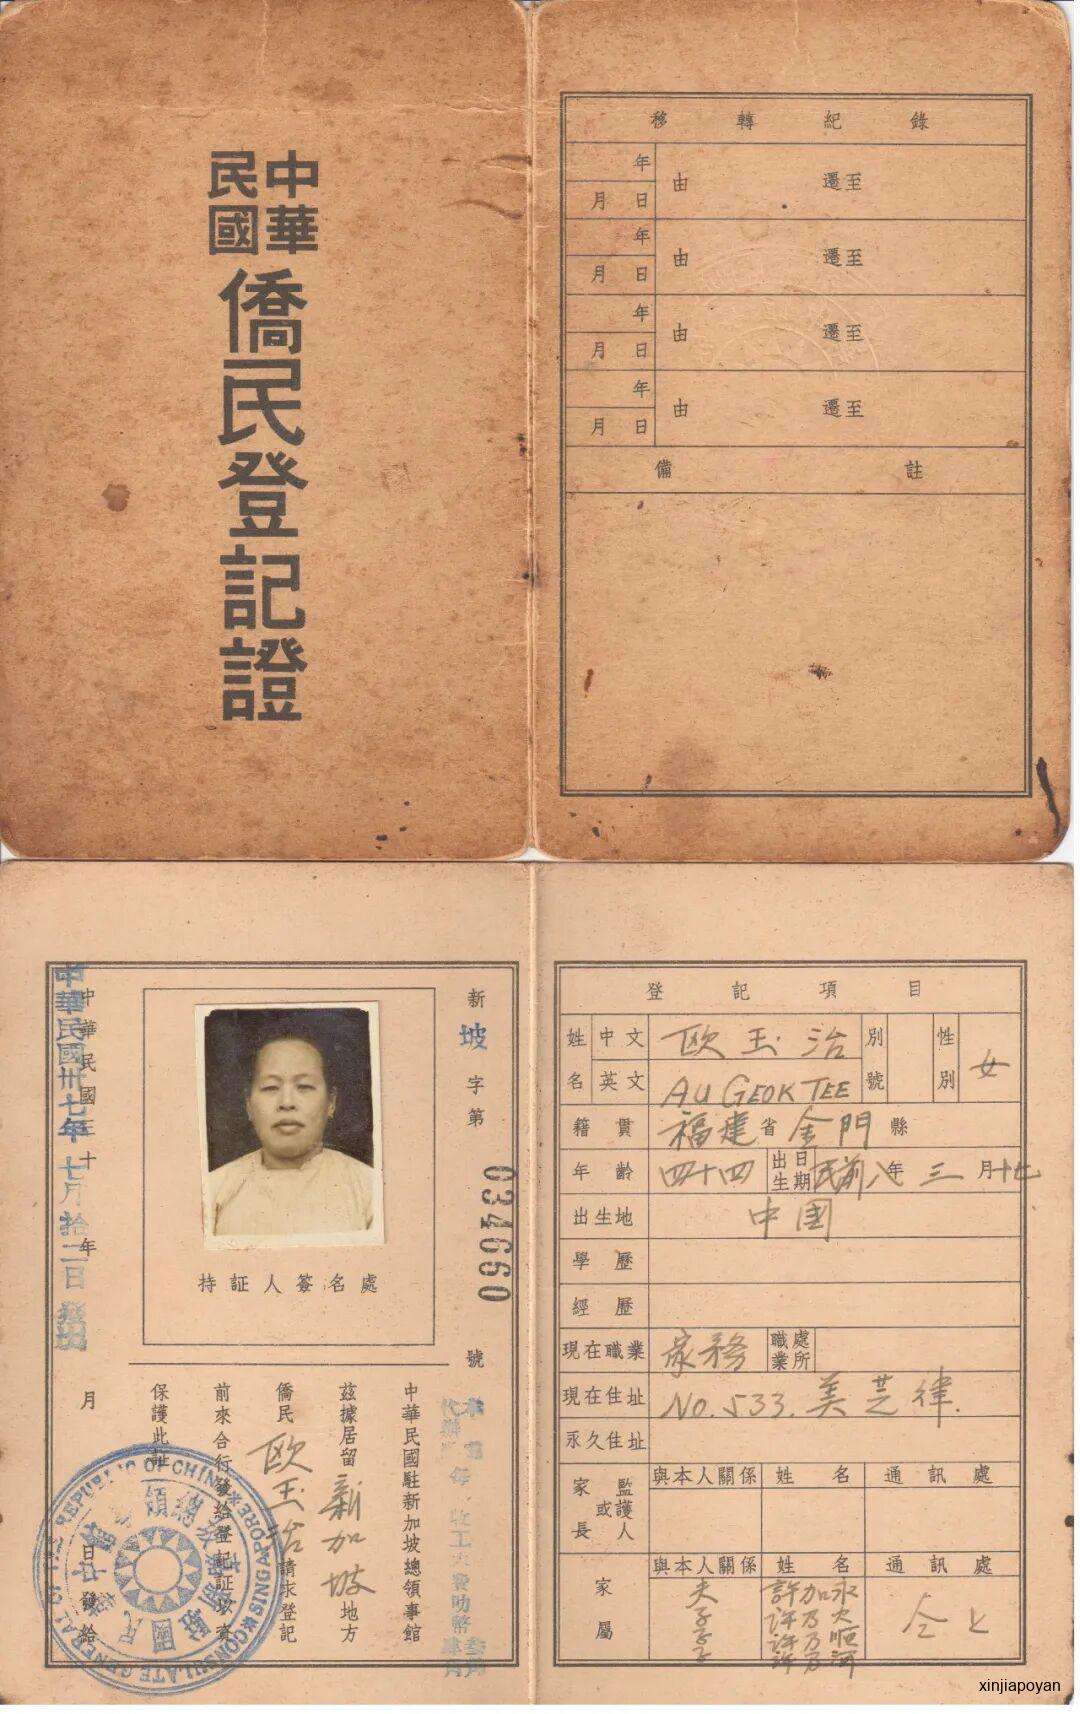 中華
民國
僑民登記證
移轉紀錄
年
月 日
由 遷至
年
月 日
由 遷至
年
月 日
由 遷至
年
月 日
由 遷至
備註
新坡字第
034660
號
持証人簽名處
中華民國駐新加坡總領事館
茲據居留新加坡地方
僑民歐玉治請求登記
前來合行發給登記証以資
保護此証
中華民國三十 年 月 日發給
中華民國卅七年七月拾二日
REPUBLIC OF CHINA
CONSULATE GENERAL
SINGAPORE
登記項目
姓名 中文 歐玉治 別號 性別 女
英文 AU GEOK TEE
籍貫 福建省金門縣
年齡 四十四 出生日期 民前八年三月十七
出生地 中國
學歷
經歷
現在職業 家務 職業處所
現在住址 No. 533. 美芝律.
永久住址
家長或監護人 與本人關係 姓名 通訊處
家屬 與本人關係 姓名 通訊處
夫 許加永 仝上
子 許乃大
子 許乃順
子 許乃河
xinjiapoyan